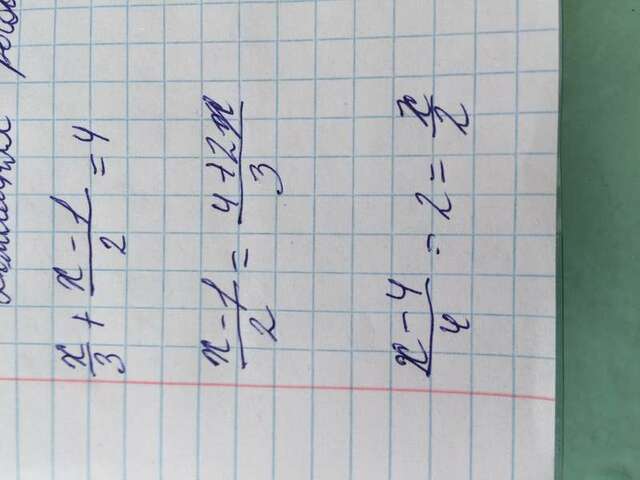 x/3 + x-1/2 = 4
x-1/2 = 4+2x/3
x-4/4 - 2 = x/2